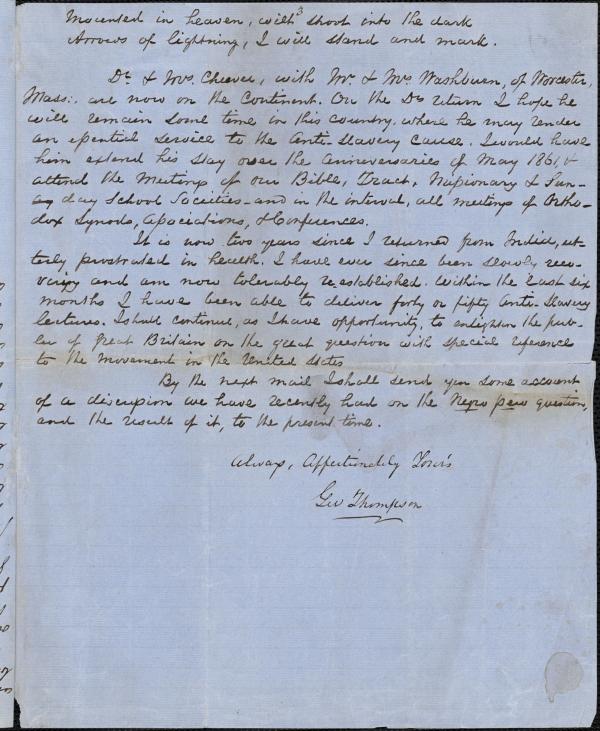 3
Mounted in heaven, wilt shoot into the dark
Arrows of lightning, I will stand and mark.
Dr. & Mrs. Cheever, with Mr. & Mrs. Washburn, of Worcester,
Mass:. are now on the Continent. On the Drs return I hope he
will remain some time in this country, where he may render
an essential service to the Anti-Slavery cause. I would have
him extend his stay over the Anniversaries of May 1861, &
attend the Meetings of our Bible, Tract, Missionary & Sun-
day School Societies - and in the interval, all meetings of Ortho-
dox Synods, Associations, & Conferences.
It is now two years since I returned from India, ut-
terly prostrated in health. I have ever since been slowly reco-
vering and am now tolerably re, established. Within the last six
months I have been able to deliver forty or fifty Anti-Slavery
lectures. I shall continue, as I have opportunity, to enlighten the pub-
lic of Great Britain on the great question with special reference
to the movement in the United States
By the next mail I shall send you some account
of a discussion we have recently had on the Negro pew question,
and the result of it, to the present time.
Always, Affectionately Yours
Geo Thompson